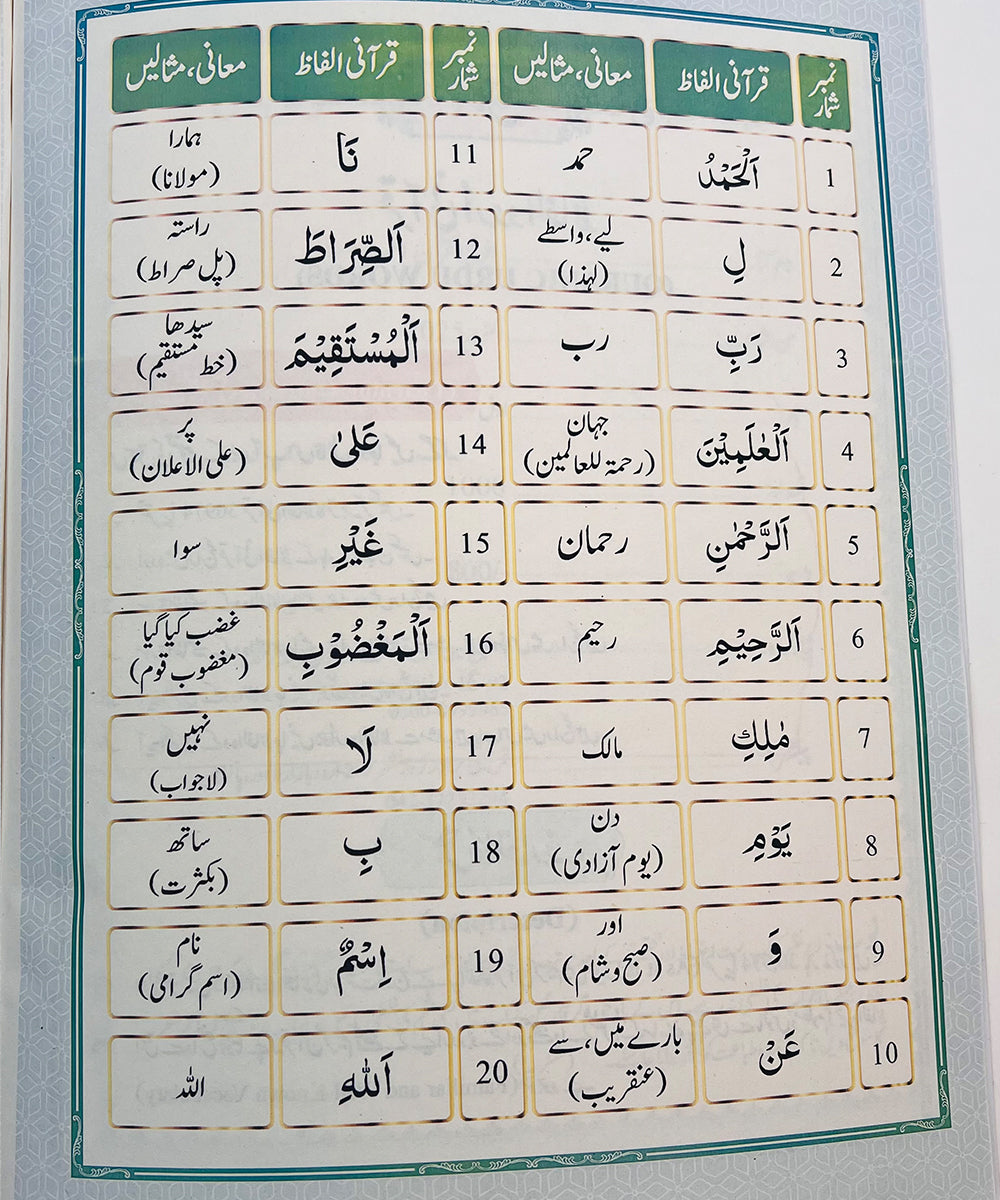 نمبر شمار	قرآنی الفاظ	معانی، مثالیں	نمبر شمار	قرآنی الفاظ	معانی، مثالیں
1	اَلْحَمْدُ	حمد	11	نَا	ہمارا (مولانا)
2	لِ	لیے، واسطے (لہذا)	12	اَلصِّرَاطَ	راستہ (پل صراط)
3	رَبِّ	رب	13	اَلْمُسْتَقِيْمَ	سیدھا (خط مستقیم)
4	اَلْعٰلَمِيْنَ	جہان (رحمۃ للعالمین)	14	عَلٰى	پر (علی الاعلان)
5	اَلرَّحْمٰنِ	رحمان	15	غَيْرِ	سوا
6	اَلرَّحِيْمِ	رحیم	16	اَلْمَغْضُوْبِ	غضب کیا گیا (مغضوب قوم)
7	مٰلِكِ	مالک	17	لَا	نہیں (لاجواب)
8	يَوْمِ	دن (یوم آزادی)	18	بِ	ساتھ (بکثرت)
9	وَ	اور (صبح و شام)	19	اِسْمٌ	نام (اسم گرامی)
10	عَنْ	بارے میں، سے (عنقریب)	20	اَللّٰهِ	اللہ